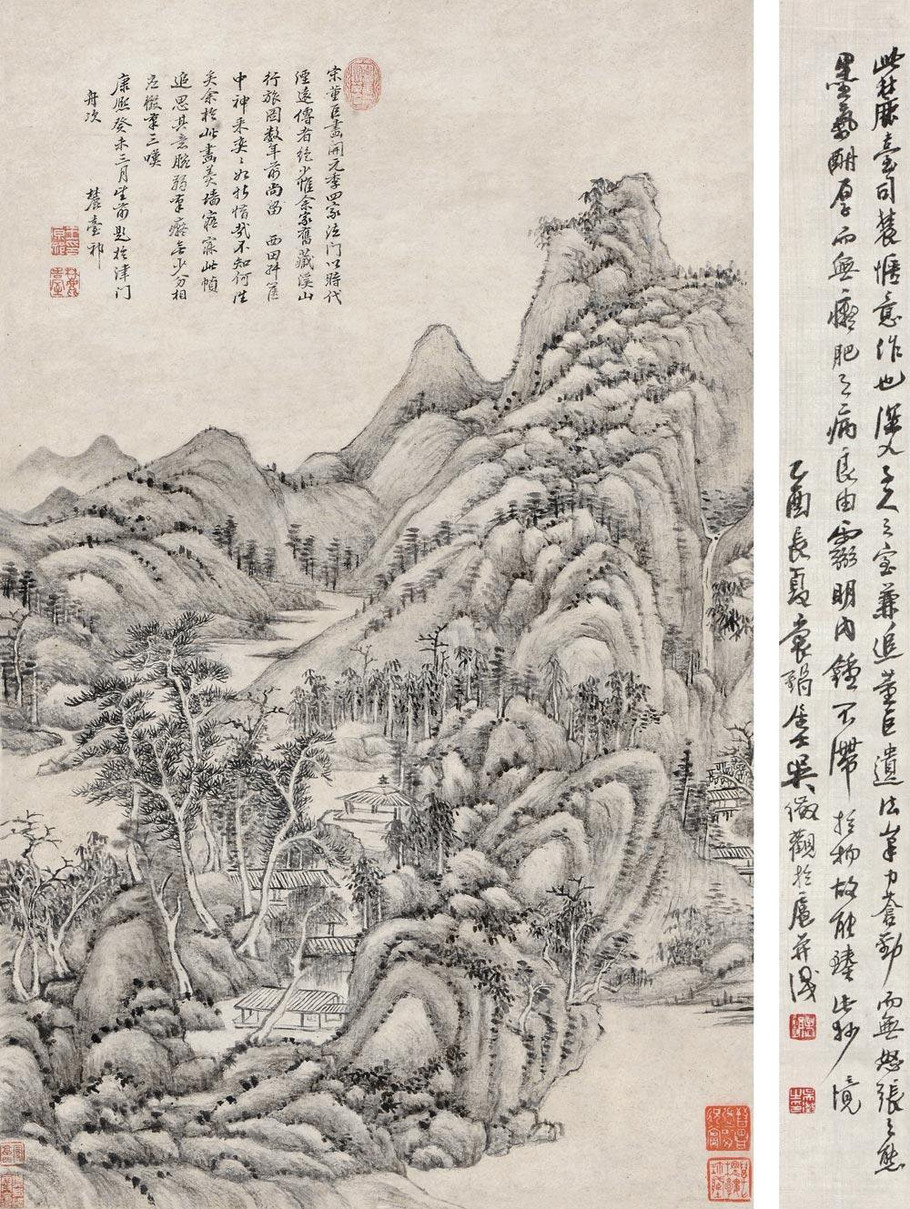 宋董巨畫開元季四家法門以時代
湮遠傳者絕少惟余家舊藏溪山
行旅圖數年前尚留 西田
中神采奕々如昨惜哉不知何往
矣余於此畫羹墻寤寐此幀
追思其意腕弱筆癡無少分相
應擱筆三嘆
康熙癸未三月望前題於津門
舟次 麓臺祁
此麓臺司農愜意作也深入子久之室兼追董巨遺法筆力蒼勁而無怒張之態
墨氣酣厚而無癡肥之病良由靈明內鍾不滯於物故能臻此妙境
乙酉長夏 吳徵觀於滬并識